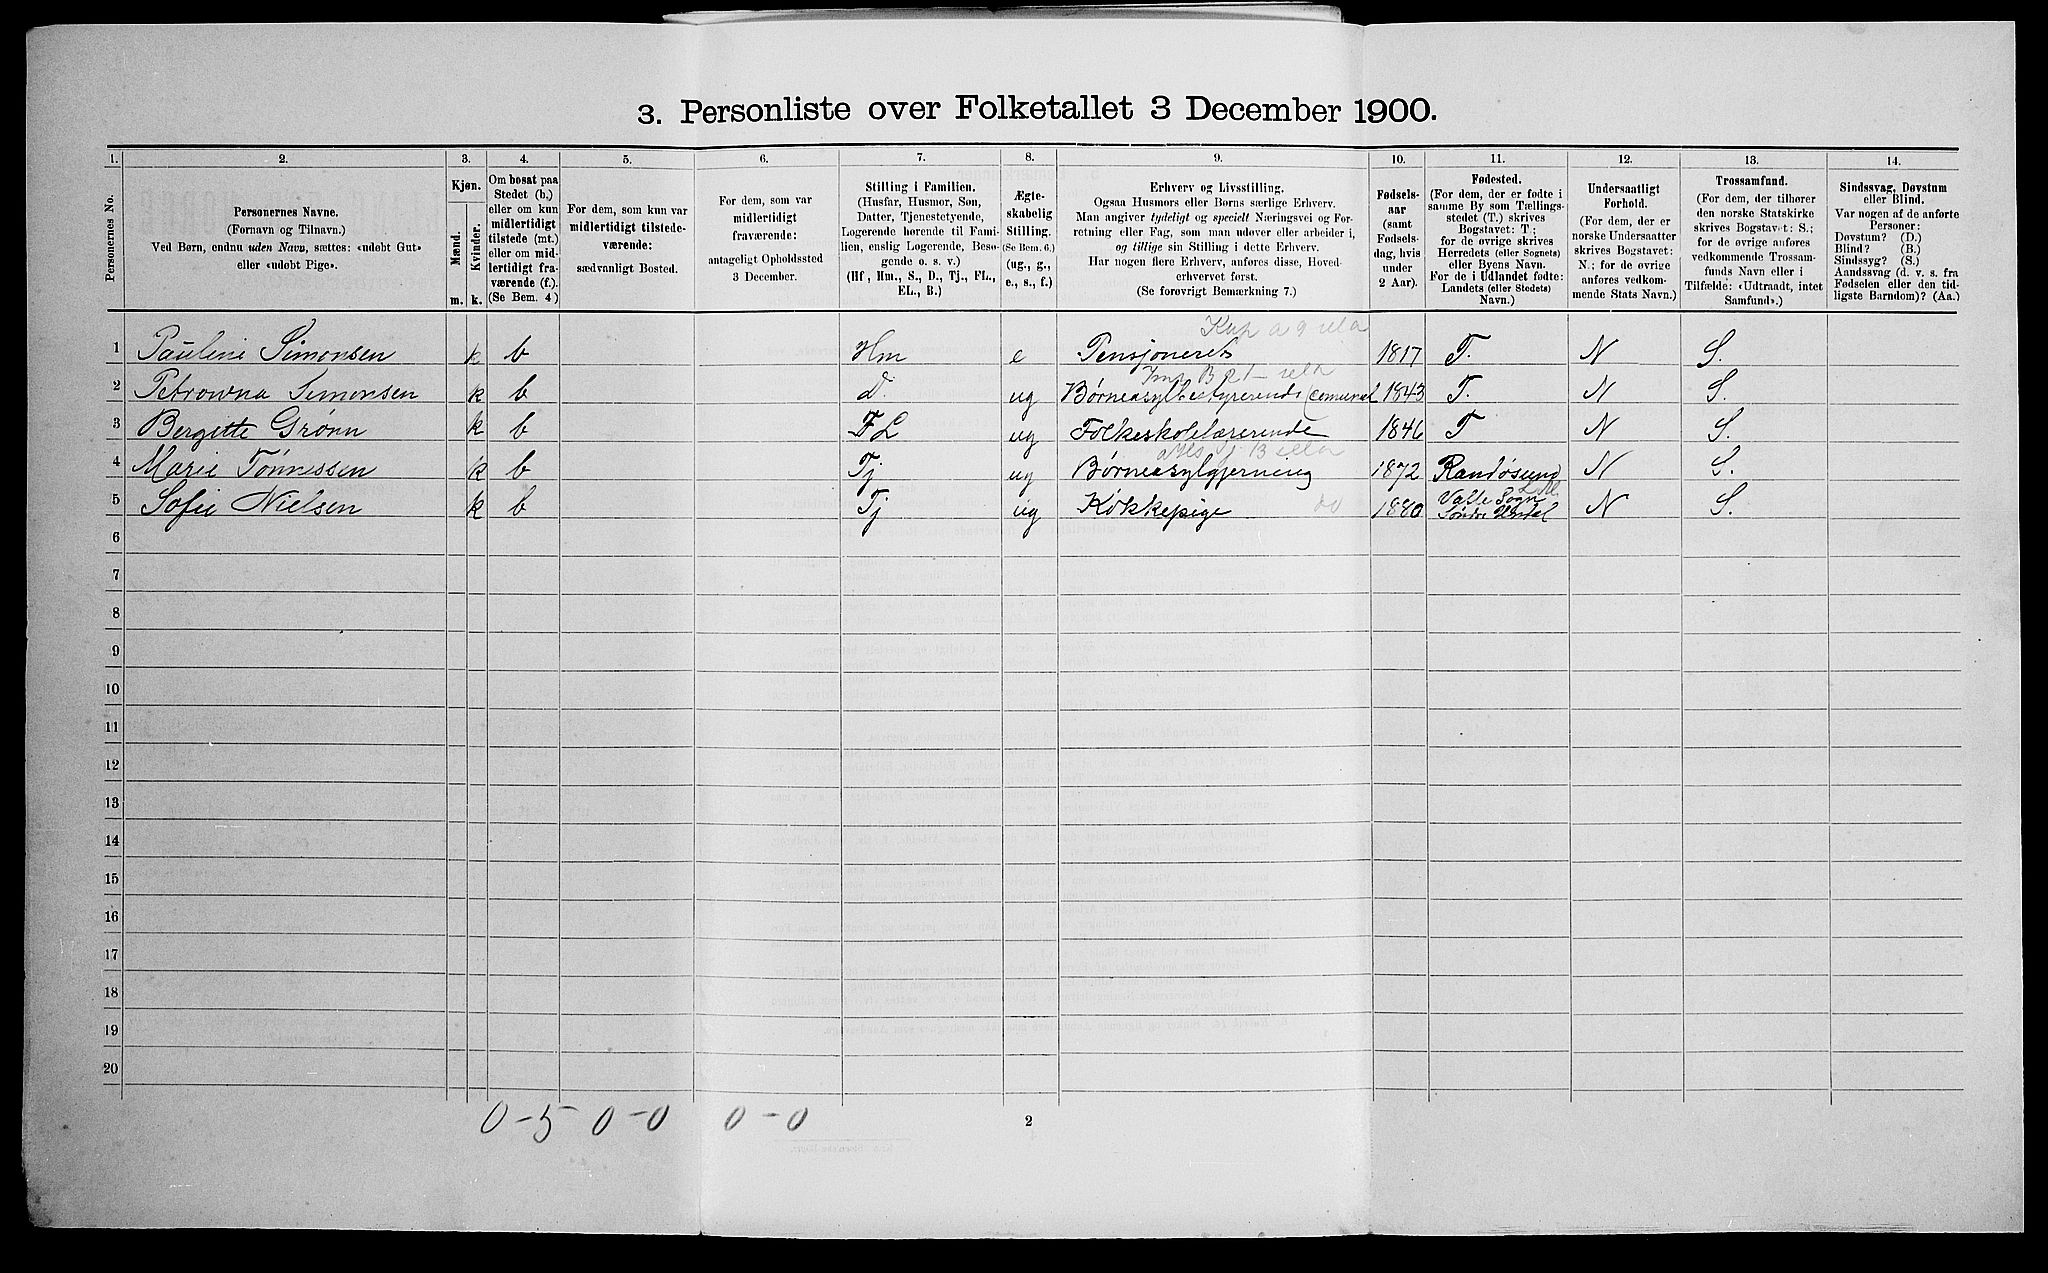 3. Personliste over Folketallet 3 December 1900.
1. 2. 3. 4. 5. 6. 7. 8. 9. 10. 11. 12. 13. 14.
Personernes No.
Personernes Navne.
(Fornavn og Tilnavn.)
Ved Børn, endnu uden Navn, sættes: «udøbt Gut»
eller «udøbt Pige».
Kjøn.
Mænd.
Kvinder.
m. k.
Om bosat paa
Stedet (b.)
eller om kun
midlertidigt
tilstede (mt.)
eller om mid-
lertidigt fra-
værende (f.).
(Se Bem. 4)
For dem, som kun var
midlertidigt tilstede-
værende:
sædvanligt Bosted.
For dem, som var
midlertidigt
fraværende:
antageligt Opholdssted
3 December.
Stilling i Familien.
(Husfar, Husmor, Søn,
Datter, Tjenestetyende,
Logerende hørende til Fami-
lien, enslig Logerende, Besø-
gende o. s. v.)
(Hf, Hm., S., D., Tj., FL.,
EL., B.)
Ægte-
skabelig
Stilling.
(Se Bem. 6.)
(ug., g.,
e., s., f.)
Erhverv og Livsstilling.
Ogsaa Husmors eller Børns særlige Erhverv.
Man angiver tydeligt og specielt Næringsvei og For-
retning eller Fag, som man udøver eller arbeider i,
og tillige sin Stilling i dette Erhverv.
Har nogen flere Erhverv, anføres disse, Hoved-
erhvervet først.
(Se forøvrigt Bemærkning 7.)
Fødsels-
aar
(samt
Fødsels-
dag, hvis
under
2 Aar).
Fødested.
(For dem, der er fødte i
samme By som Tællings-
stedet (T.) skrives
Bogstavet: T.;
for de øvrige skrives
Herredets (eller Sognets)
eller Byens Navn.
For de i Udlandet fødte:
Landets (eller Stedets)
Navn.)
Undersaatligt
Forhold.
(For dem, der er
norske Undersaatter
skrives Bogstavet:
N.; for de øvrige
anføres vedkom-
mende Stats Navn.)
Trossamfund.
(For dem, der tilhører
den norske Statskirke
skrives Bogstavet: S.;
for de øvrige anføres
vedkommende Trossam-
funds Navn eller i
Tilfælde: «Udtraadt, intet
Samfund».)
Sindssvag, Døvstum
eller Blind.
Var nogen af de anførte
Personer:
Døvstum? (D.)
Blind? (B.)
Sindssyg? (S.)
Aandssvag (d. v. s. fra
Fødselen eller den tid-
ligste Barndom)? (Aa.)
1 Pauline Simonsen k b Hm e Pensjonerets 1817 T. N S.
2 Petrowna Simonsen k b D. ug Børneasylbestyrerende (comunal 1843 T. N S.
3 Bergitte Grønn k b FL ug Folkeskolelærerende 1846 T N S.
4 Marie Tønnessen k b Tj ug Børneasylgjerning 1872 Randøsund N S.
5 Sofie Nielsen k b Tj ug Kokkepige do 1880 Valle Sogn
N S.
6
7
8
9
10
11
12
13
14
15
16
17
18
19
20
0-5 0-0 0-0
2